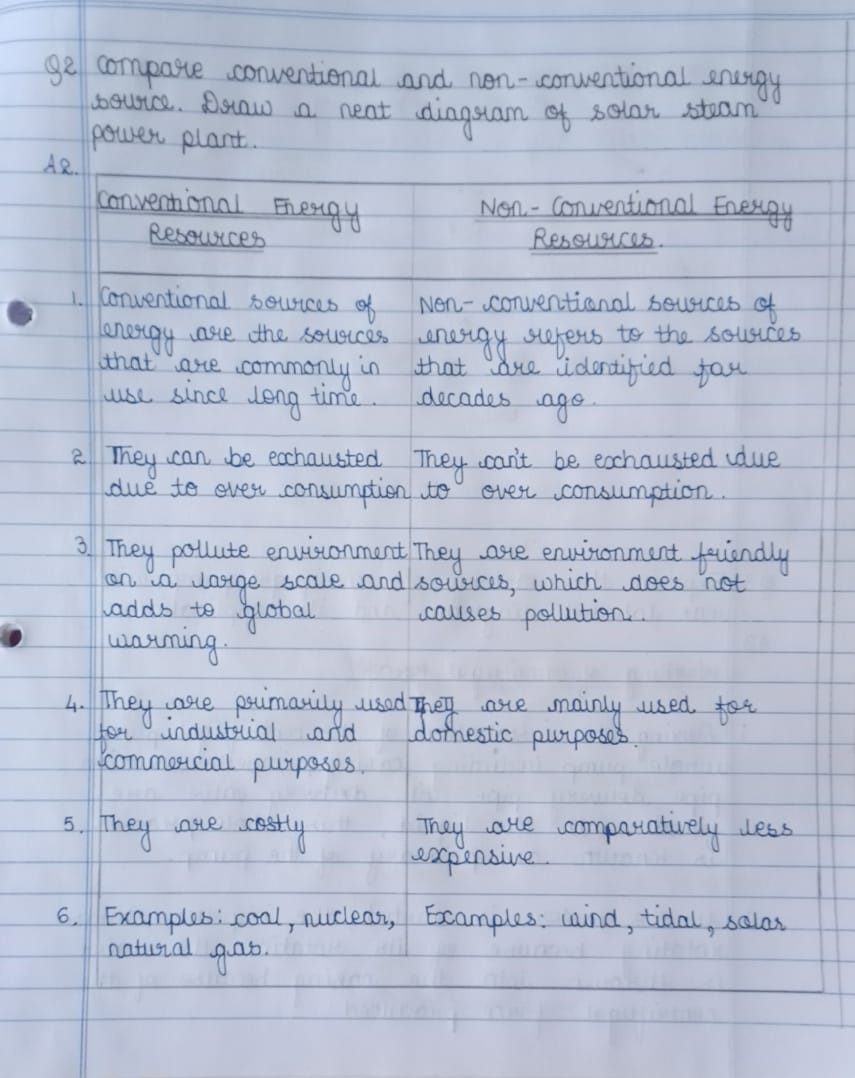 Q2 Compare conventional and non-conventional energy
source. Draw a neat diagram of solar steam
power plant.
A2.
Conventional Energy
Resources
Non-Conventional Energy
Resources.
1. Conventional sources of
energy are the sources
that are commonly in
use since long time.
Non-conventional sources of
energy refers to the sources
that are identified far
decades ago.
2 They can be exchausted
due to over consumption
They can't be exchausted due
to over consumption.
3. They pollute environment
on a large scale and
adds to global
warming.
They are environment friendly
sources, which does not
causes pollution.
4. They are primarily used
for industrial and
commercial purposes.
They are mainly used for
domestic purposes.
5. They are costly
They are comparatively less
expensive.
6. Examples: coal, nuclear,
natural gas.
Examples: wind, tidal, solar